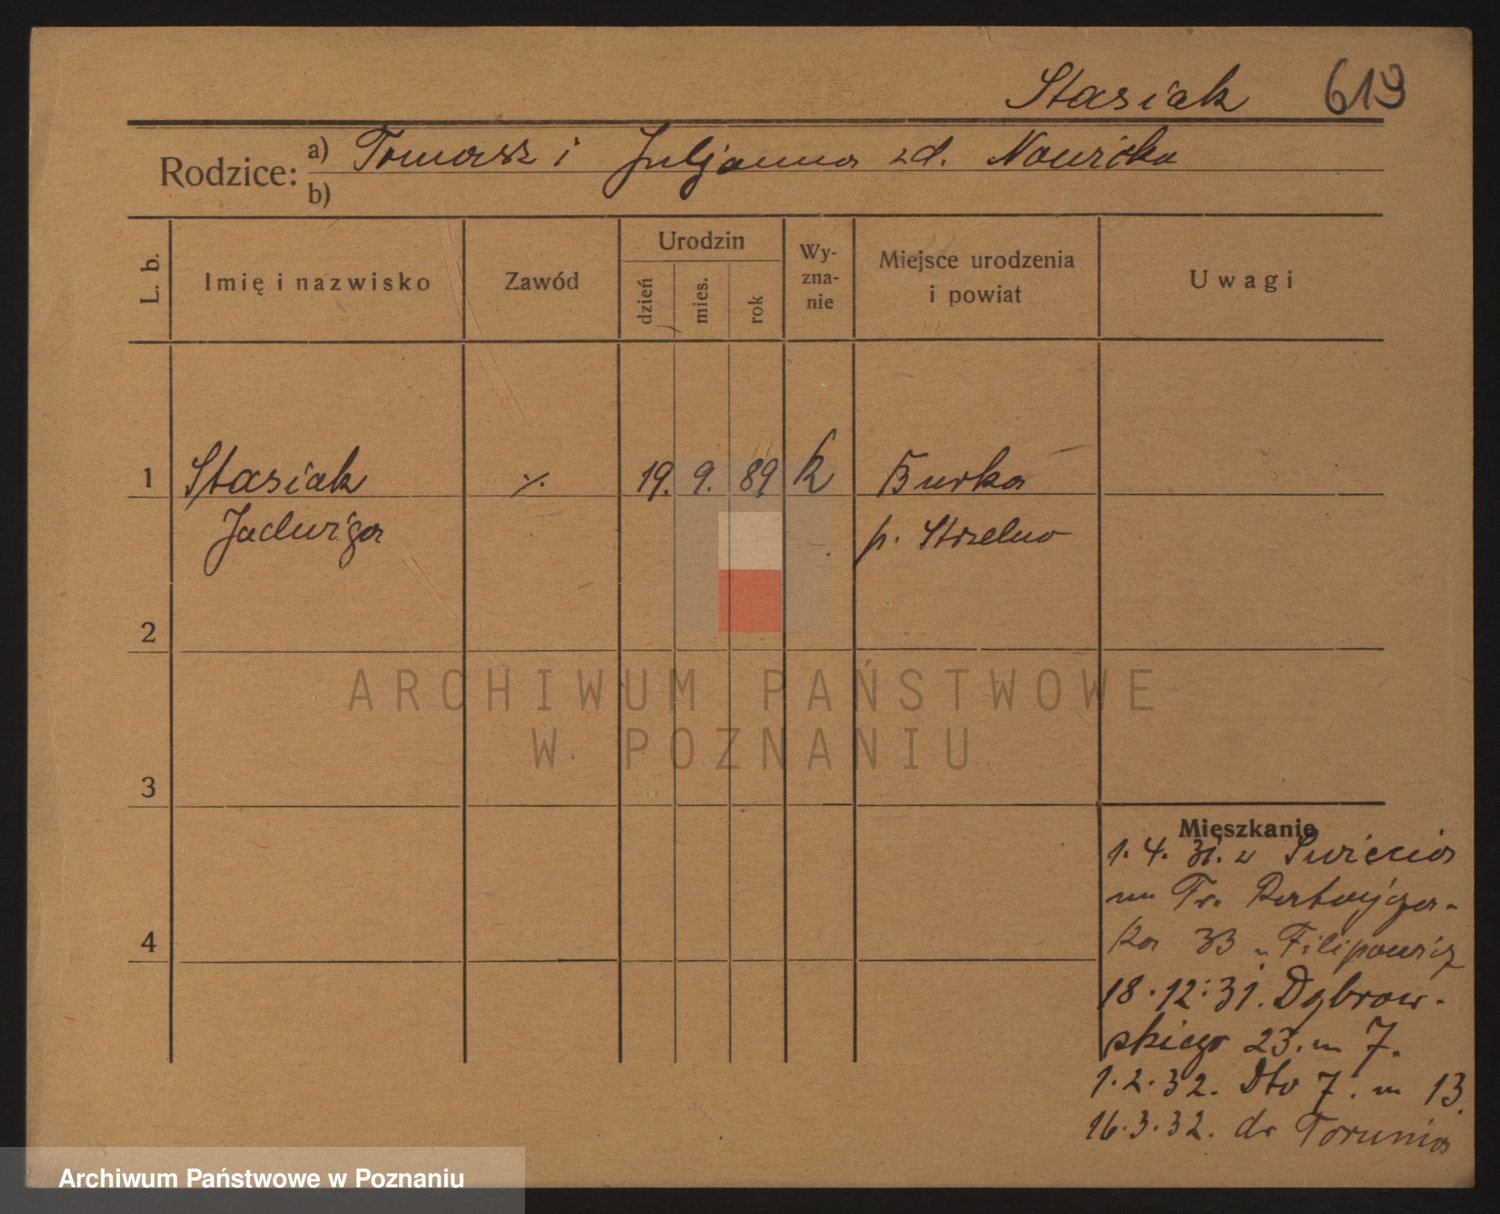 Stasiak 619
Rodzice: a) Tomasz i Juljanna zd. Nowicka
b)
L. b.
Imię i nazwisko
Zawód
Urodzin
dzień
mies.
rok
Wy-
zna-
nie
Miejsce urodzenia
i powiat
Uwagi
1 Stasiak ٪ 19. 9. 89 k Burka
Jadwiga p. Strzelno
2
3
4
ARCHIWUM PAŃSTWOWE
W POZNANIU
Mieszkanie
1. 4. 31. z Świecia
na Fr. Ratajcza-
ka 33 u Filipowicz
18. 12. 31. Dąbrow-
skiego 23. m 7.
1. 2. 32. Dto 7. m 13.
16. 3. 32. do Torunia
Archiwum Państwowe w Poznaniu